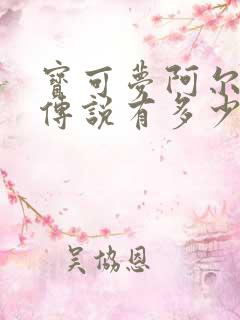 寶可夢阿尔
傳說有多少
吴協恩